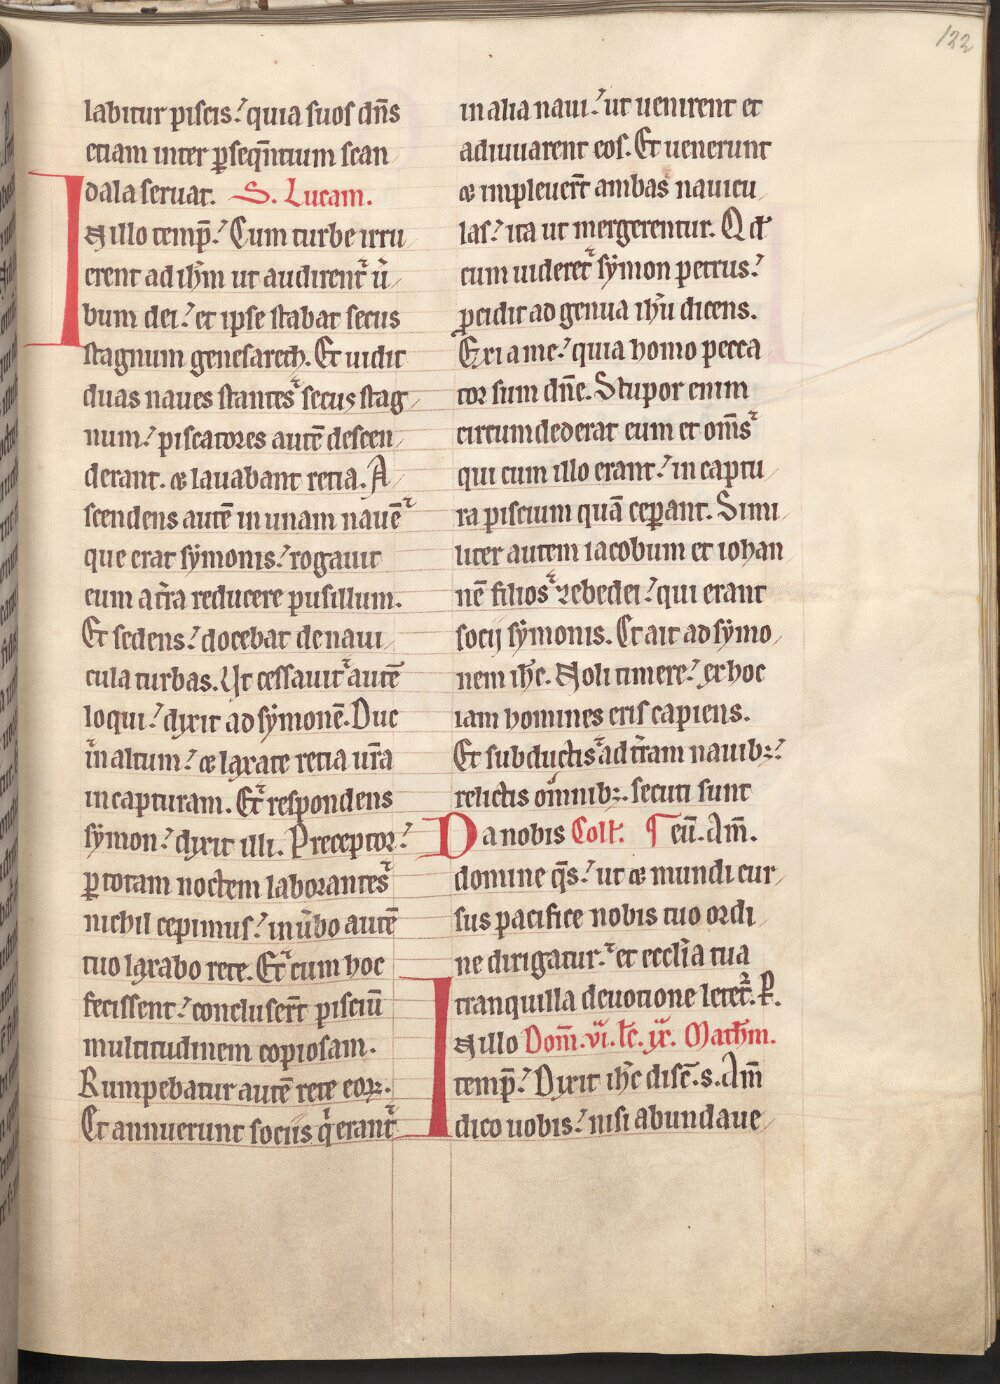 132
labitur piscis? quia suos dn̄s
etiam inter p̱seqn̄tium scan
dala seruat. S. Lucam.
In illo temp̄? Cum turbe irru
erent ad ih̄m ut audirent u̅
bum dei? et ipse stabat secus
stagnum genesareth. Et uidit
duas naues stantes secus stag
num? piscatores autē descen
derant. & lauabant retia. A
scendens autē in unam nauē
que erat sẏmonis? rogauit
eum at̄ra reducere pusillum.
Et sedens? docebat de naui
cula turbas. Ut cessauit autē
loqui? dixit ad sẏmonē. Duc
in altum? & laxate retia ur̄a
in capturam. Et respondens
sẏmon? dixit illi. Preceptor?
p̱ totam noctem laborantes
nichil cepimus? in u̅bo autē
tuo laxabo rete. Et cum hoc
fecissent? concluser̄t pisciū
multitudinem copiosam.
Rumpebatur autē rete eoꝝ.
Et annuerunt sociis q̇ erant
in alia naui? ut uenirent et
adiuuarent eos. Et uenerunt
& impleuer̄t ambas nauicu
las? ita ut mergerentur. Qđ
cum uideret sẏmon petrus?
p̱cidit ad genua ih̄u dicens.
Exi a me? quia homo pecca
tor sum dn̄e. Stupor enim
circumdederat eum et om̄s
qui cum illo erant? in captu
ra piscium quā cep̱ant. Simi
liter autem iacobum et iohan
nē filios zebedei? qui erant
socij sẏmonis. Et ait ad sẏmo
nem ih̄c. Noli timere? ex hoc
iam homines eris capiens.
Et subductis ad t̄ram nauibꝫ?
relictis omnibꝫ. secuti sunt
Da nobis Coll̄. ¶ eū. Am̄.
domine q̄s? ut & mundi cur
sus pacifice nobis tuo ordi
ne dirigatur? et eccl̄ia tua
tranquilla deuotione letet̄. P̱.
In illo Dom̄. vi. łc. ix. Math̄m.
temp̄? Dixit ih̄c disc̄. s. Am̄
dico uobis? nisi abundaue